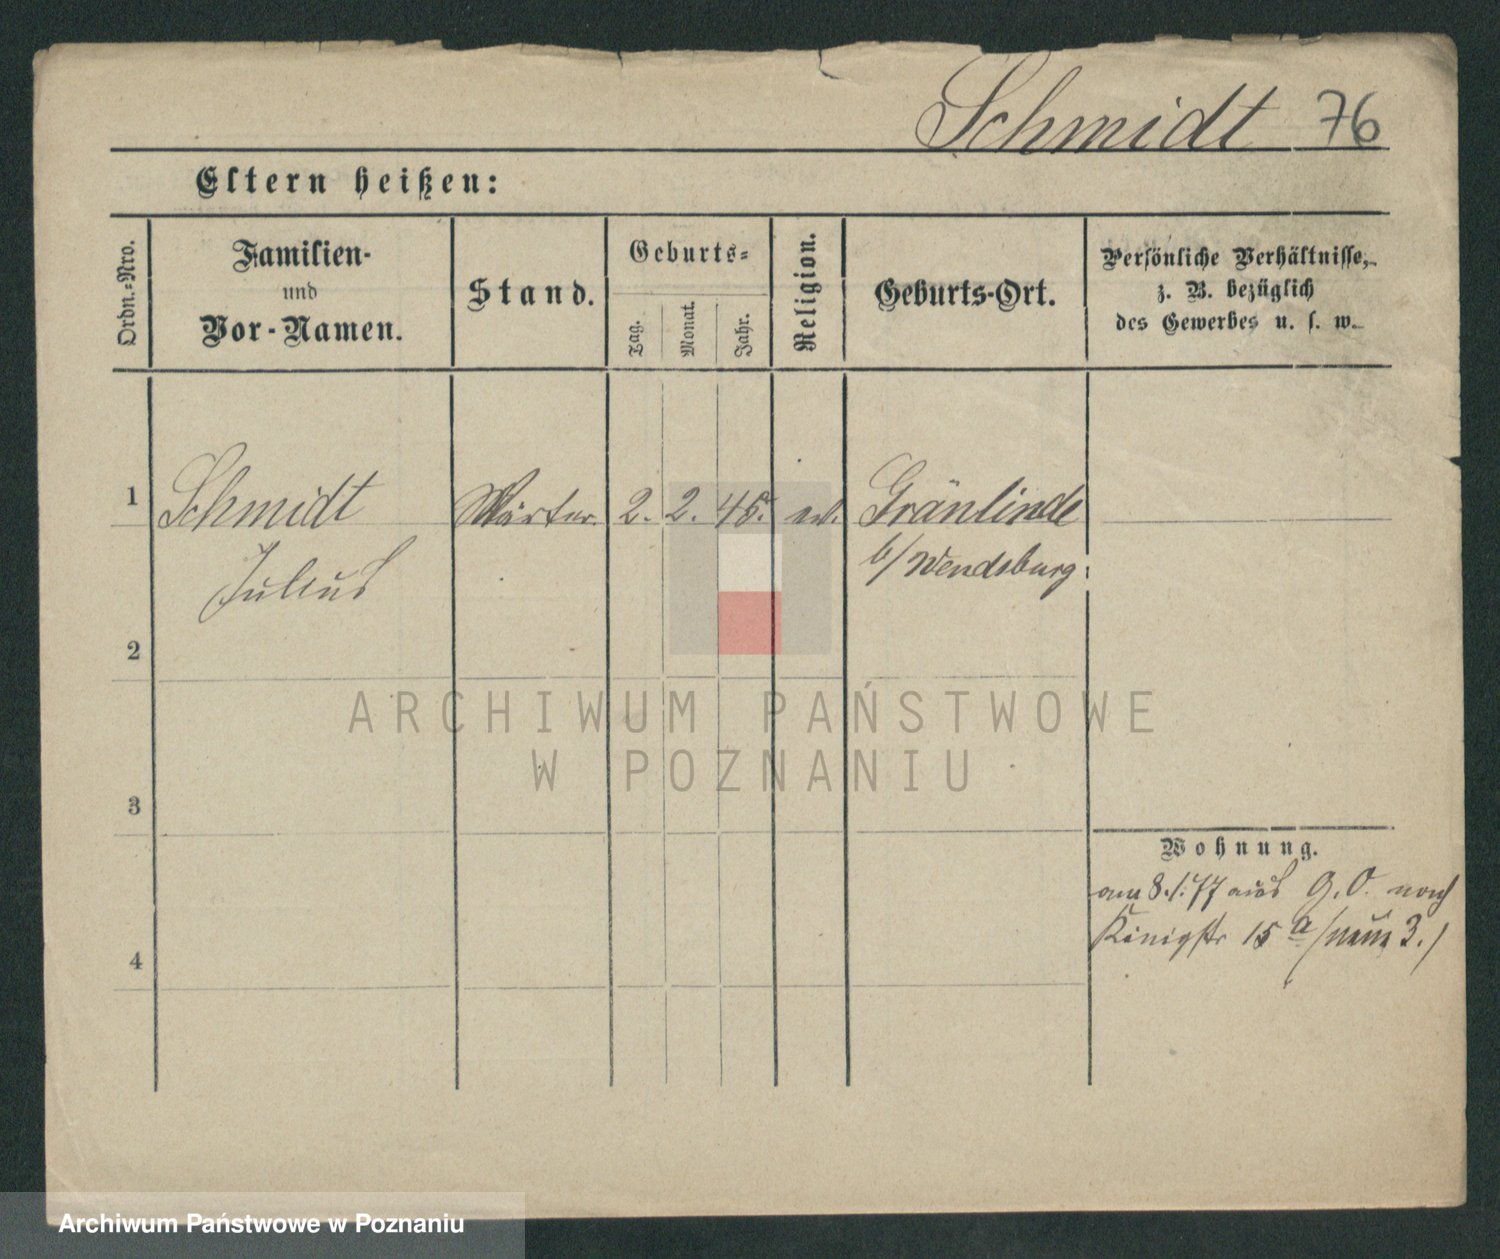 Schmidt 76
Eltern heißen:
Ordn.-Nro.
Familien-
und
Vor-Namen.
Stand.
Geburts-
Tag.
Monat.
Jahr.
Religion.
Geburts-Ort.
Persönliche Verhältnisse,
z. B. bezüglich
des Gewerbes u. s. w.
1 Schmidt Wärter. 2. 2. 45. ev. Gränlinde
Julius b/ Wendsburg.
2
3
Wohnung.
am 8. /. 77 aus G. O. nach
Königstr 15 a (neue 3.)
4
ARCHIWUM PAŃSTWOWE
W POZNANIU
Archiwum Państwowe w Poznaniu